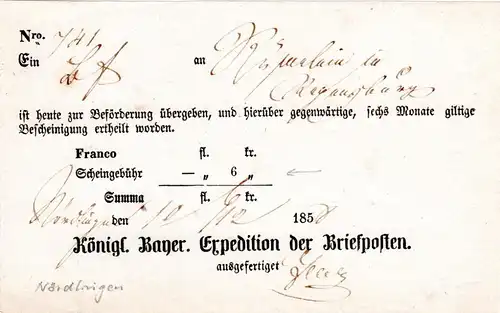 Nro. 741
Ein Bf an in
Regensburg
ist heute zur Beförderung übergeben, und hierüber gegenwärtige, sechs Monate giltige
Bescheinigung ertheilt worden.
Franco fl. kr.
Scheingebühr — „ 6 „
Summa fl. 6 kr.
Nördlingen den 10/12 1858
Königl. Bayer. Expedition der Briefposten.
ausgefertiget
Nördlingen